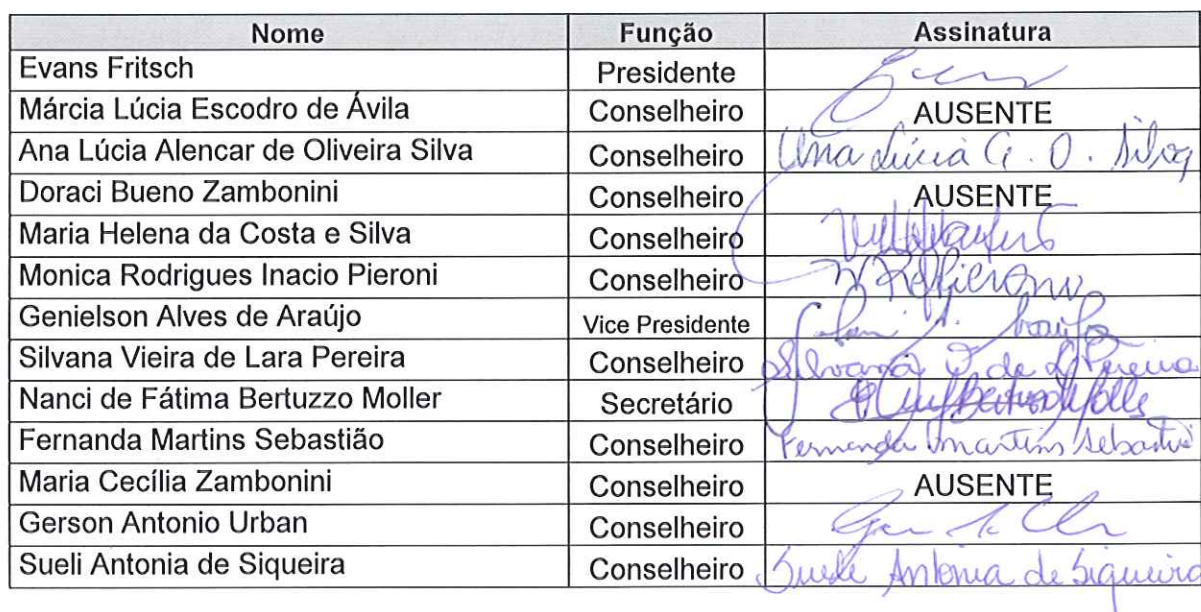 Nome Função Assinatura
Evans Fritsch Presidente
Márcia Lúcia Escodro de Ávila Conselheiro AUSENTE
Ana Lúcia Alencar de Oliveira Silva Conselheiro Ana Lúcia A. O. Silva
Doraci Bueno Zambonini Conselheiro AUSENTE
Maria Helena da Costa e Silva Conselheiro
Monica Rodrigues Inacio Pieroni Conselheiro MRIPieroni
Genielson Alves de Araújo Vice Presidente
Silvana Vieira de Lara Pereira Conselheiro Silvana V. de L. Pereira
Nanci de Fátima Bertuzzo Moller Secretário
Fernanda Martins Sebastião Conselheiro Fernanda Martins Sebastião
Maria Cecília Zambonini Conselheiro AUSENTE
Gerson Antonio Urban Conselheiro
Sueli Antonia de Siqueira Conselheiro Sueli Antonia de Siqueira